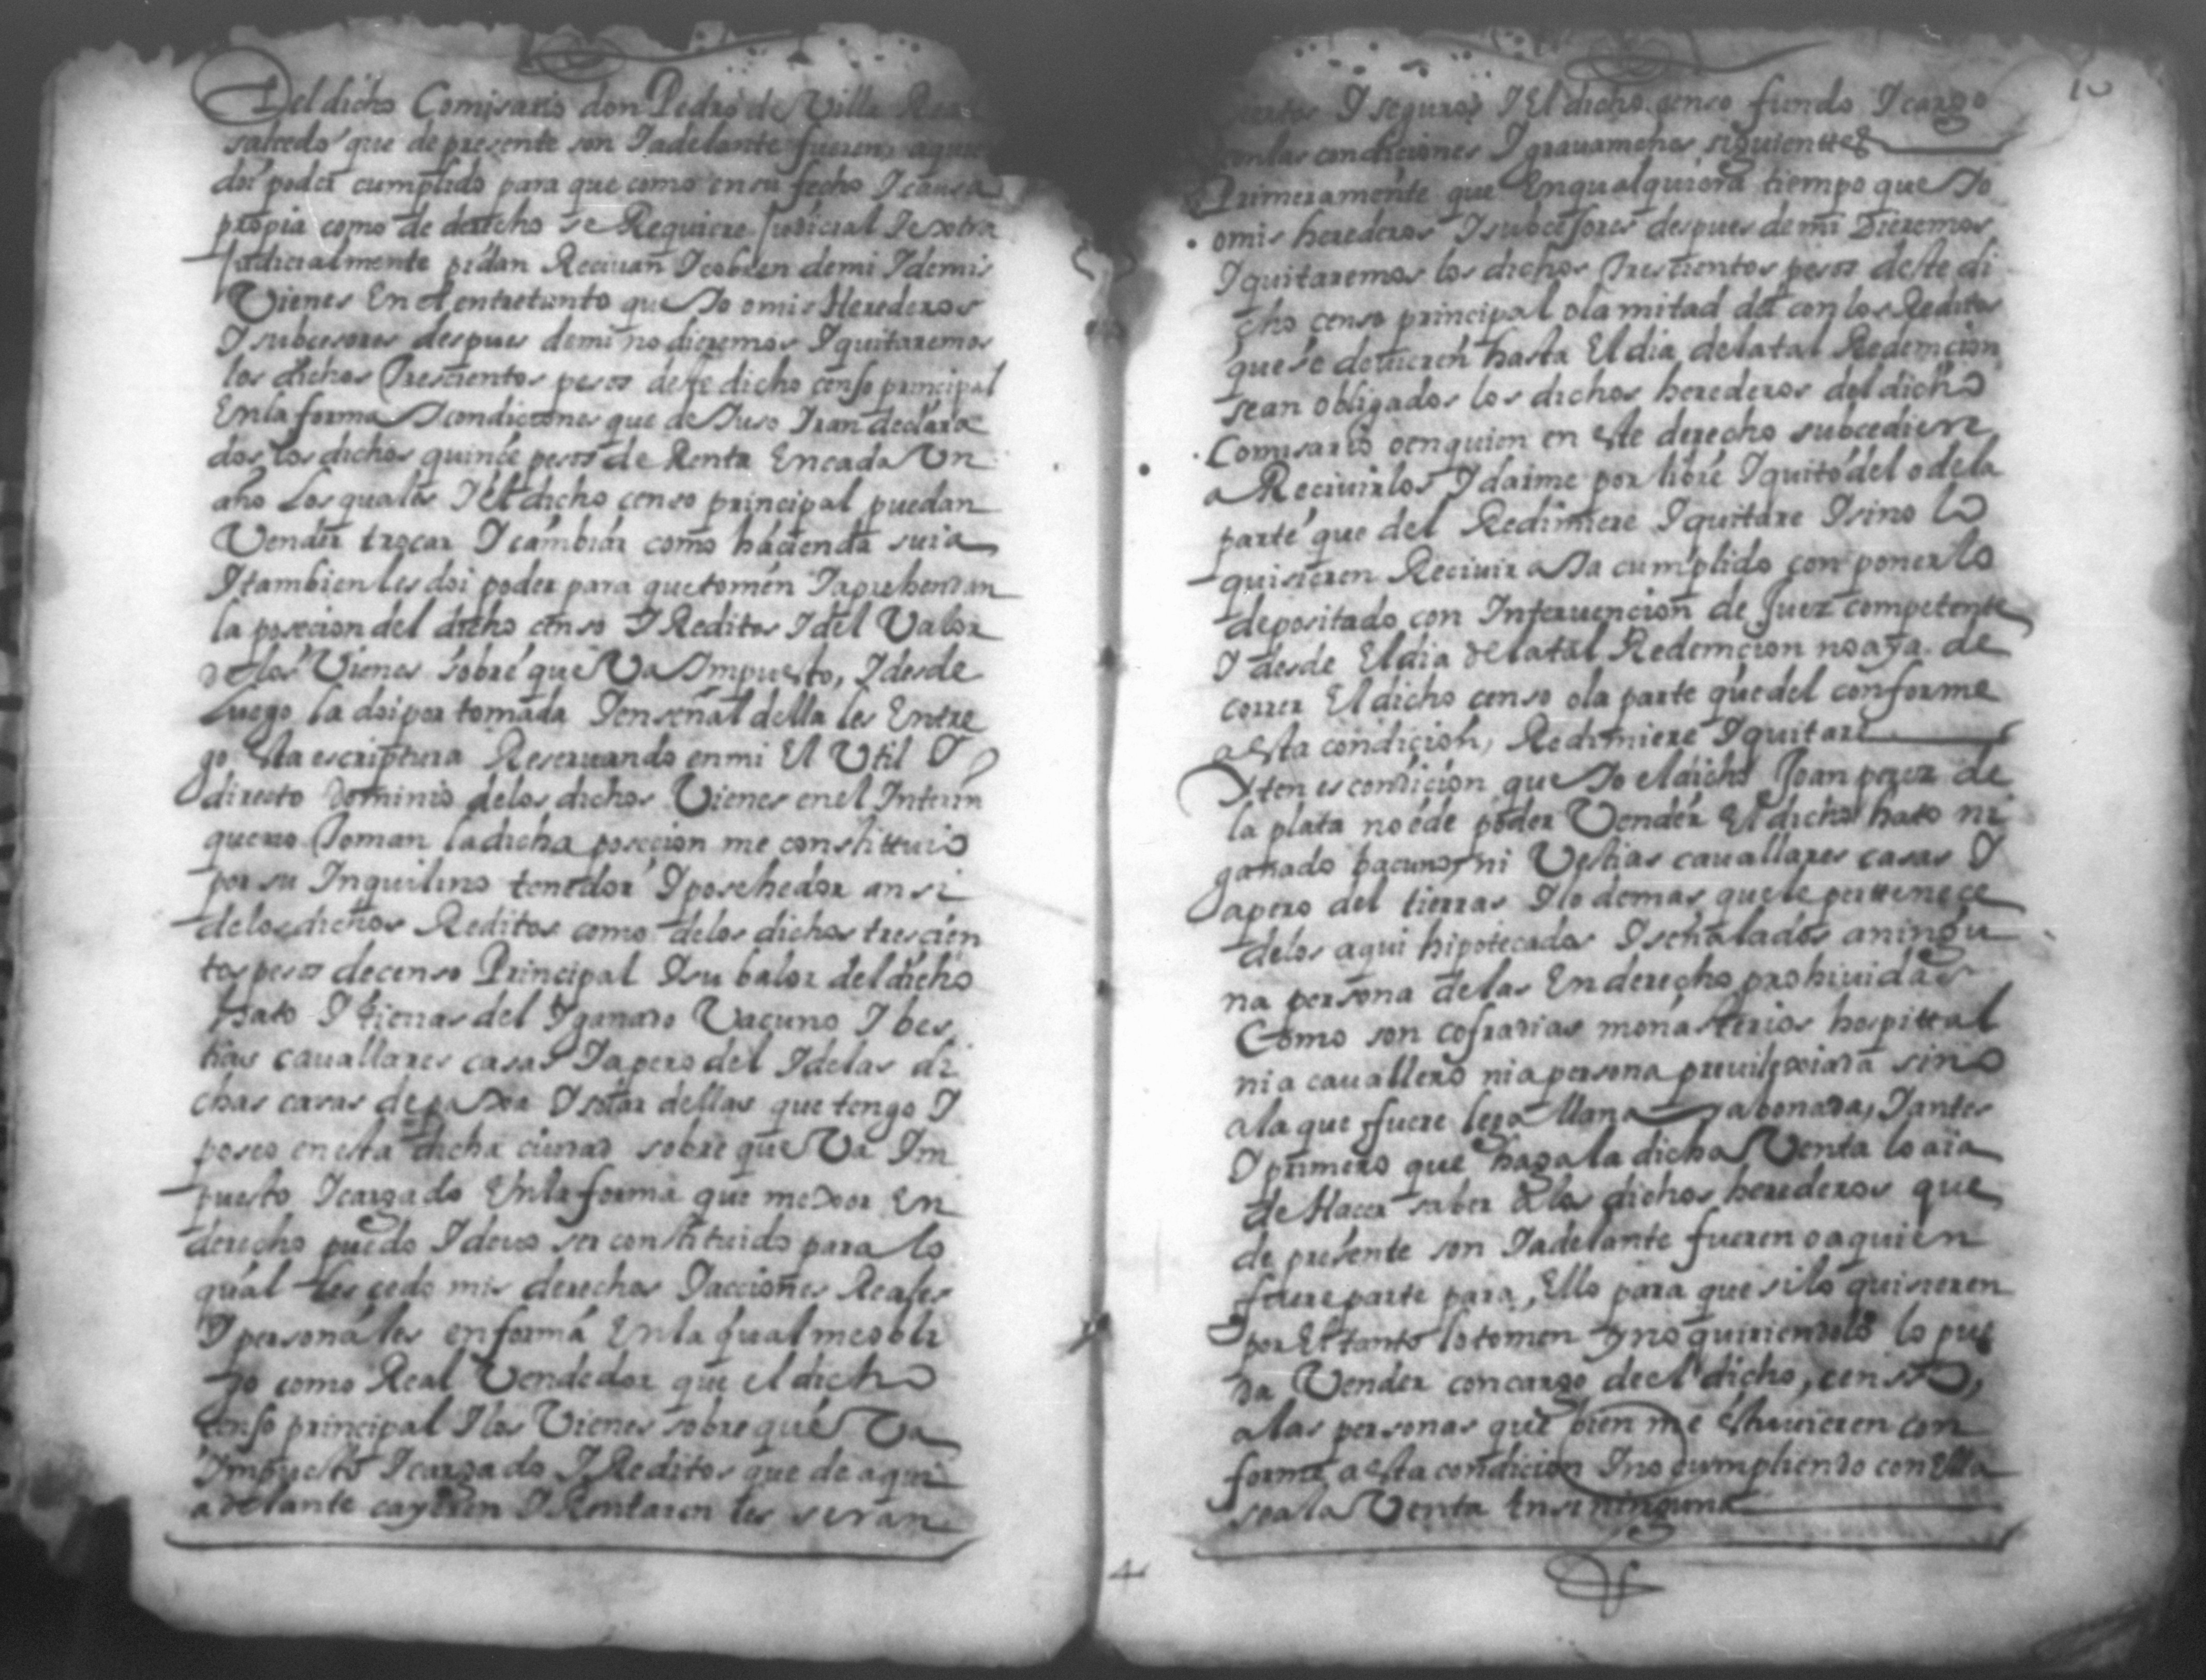 Del dicho Comisario don Pedro de Villa Real
salcedo que de presente son I adelante fueren, aquie
doi poder cumplido para que como en su fecho I causa
propia como de derecho se Requiere Judicial I extra
Judicialmente pidan Reciuan I cobren de mi I de mis
Vienes En el entretanto que Io o mis Herederos
I subcesores despues de mi no dieremos I quitaremos
los dichos Trescientos pesos deste dicho censo principal
En la forma I condiciones que de Iuso Iran declara
dos los dichos quince pesos de Renta En cada Vn
año Los quales I el dicho censo principal puedan
Vender trocar I cambiar como hacienda suia
I tambien les doi poder para que tomen I aprehendan
la posecion del dicho censo I Reditos I del Valor
de los Vienes sobre que Va Impuesto, I desde
Luego la doi por tomada I en señal della les Entre
go Esta escriptura Reseruando en mi El Vtil I
directo Dominio de los dichos Vienes en el Interin
que no Toman la dicha posecion me constituio
por su Inquilino tenedor I posehedor ansi
de los dichos Reditos como de los dichos trescien
tos pesos de censo Principal I su balor del dicho
hato I tierras del I ganado Vacuno I bes
tias cauallares casas I apero del I de las di
chas casas de paxa I solar dellas que tengo I
poseo en esta dicha ciudad sobre que Va Im
puesto I cargado En la forma que mexor En
derecho puedo I deuo ser constituido para lo
qual les cedo mis derechos I acciones Reales
I personales en forma En la qual me obli
go como Real Vendedor que el dicho
censo principal I los Vienes sobre que Va
Impuesto I cargado I Reditos que de aqui
adelante cayeren I Rentaren les seran
10
ciertos I seguros I El dicho censo fundo I cargo
con las condiciones I grauamenes siguienttes
Primeramente que En qualquiera tiempo que Io
o mis herederos I subcesores despues de mi Dieremos
I quitaremos los dichos Trescientos pesos deste di
cho censo principal o la mitad del con los Reditos
que se deuieren hasta El dia de la tal Redemcion
sean obligados los dichos herederos del dicho
Comisario o en quien en este derecho subcediere
a Reciuirlos I darme por libre I quito del o de la
parte que del Redimiere I quitare I si no lo
quisieren Reciuir aIa cumplido con ponerlo
depositado con Interuencion de Juez competente
I desde El dia de la tal Redemcion no aya de
correr El dicho censo o la parte que del conforme
a esta condicion, Redimiere I quitare
Iten es condicion que Io el dicho Joan perez de
la plata no é de poder Vender El dicho hato ni
ganado bacuno, ni Vestias cauallares casas I
apero del tierras I lo demas que le perttenece
de los aqui hipotecados I señalados a ningu
na persona de las En derecho prohiuidas
Como son cofradias monasterios hospittal
ni a cauallero ni a persona preuilexiada sino
a la que fuere lega llana y abonada, I antes
I primero que haga la dicha Venta lo aia
de Hacer saber a los dichos herederos que
de presente son I adelante fueren o a quien
fuere parte para, Ello para que si lo quisieren
por El tanto lo tomen y no quiriendolo lo pue
da Vender con cargo de el dicho, censo,
a las personas que bien me Estuuieren con
forme a esta condicion I no cumpliendo con Ella
sea la Venta En si ninguna